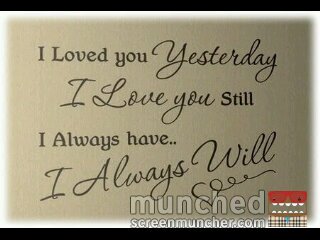 I Loved you Yesterday
I Love you Still
I Always have..
I Always Will
munched
screenmuncher.com